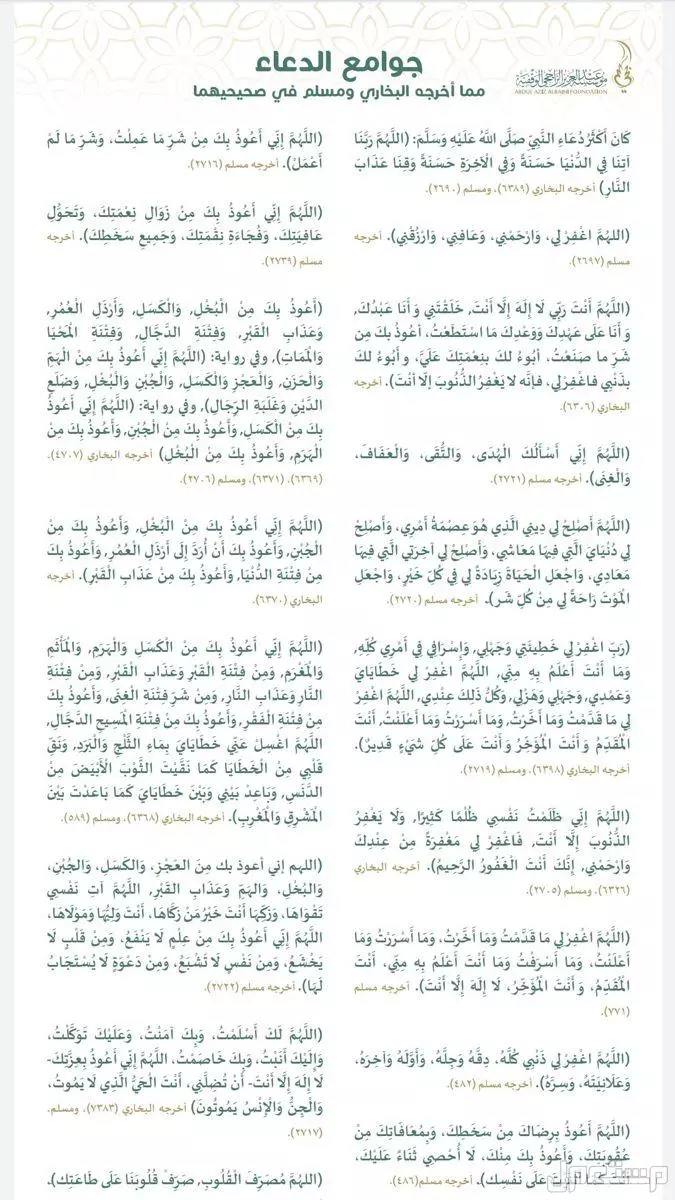 جوامع الدعاء
مما أخرجه البخاري ومسلم في صحيحيهما
مؤسسة عبدالعزيز الراجحي الوقفية
ABDUL AZIZ ALRAJHI FOUNDATION
كَانَ أَكْثَرُ دُعَاءِ النَّبِيِّ صَلَّى اللهُ عَلَيْهِ وَسَلَّمَ: (اللَّهُمَّ رَبَّنَا
آتِنَا فِي الدُّنْيَا حَسَنَةً وَفِي الْآخِرَةِ حَسَنَةً وَقِنَا عَذَابَ
النَّارِ) أخرجه البخاري (٦٣٨٩)، ومسلم (٢٦٩٠).
(اللهُمَّ اغْفِرْ لِي، وَارْحَمْنِي، وَعَافِنِي، وَارْزُقْنِي). أخرجه
مسلم (٢٦٩٧).
(اللَّهُمَّ أَنْتَ رَبِّي لَا إِلَهَ إِلَّا أَنْتَ, خَلَقْتَنِي وَ أَنَا عَبْدُكَ,
وَ أَنَا عَلَى عَهْدِكَ وَوَعْدِكَ مَا اسْتَطَعْتُ، أعُوذُ بكَ مِن
شَرِّ ما صَنَعْتُ، أبُوءُ لكَ بنِعْمَتِكَ عَلَيَّ، و أبُوءُ لكَ
بذَنْبِي فاغْفِرْ لِي، فإنَّه لا يَغْفِرُ الذُّنُوبَ إلَّا أنْتَ). أخرجه
البخاري (٦٣٠٦).
(اللَّهُمَّ إِنِّي أَسْأَلُكَ الْهُدَى، وَالتُّقَى، وَالْعَفَافَ،
وَالْغِنَى). أخرجه مسلم (٢٧٢١).
(اللَّهُمَّ أَصْلِحْ لِي دِينِي الَّذِي هُوَ عِصْمَةُ أَمْرِي، وَأَصْلِحْ
لِي دُنْيَايَ الَّتِي فِيهَا مَعَاشِي، وَأَصْلِحْ لِي آخِرَتِي الَّتِي فِيهَا
مَعَادِي، وَاجْعَلِ الْحَيَاةَ زِيَادَةً لِي فِي كُلِّ خَيْرٍ، وَاجْعَلِ
الْمَوْتَ رَاحَةً لِي مِنْ كُلِّ شَر). أخرجه مسلم (٢٧٢٠).
(رَبِّ اغْفِرْ لِي خَطِيئَتِي وَجَهْلِي, وَإِسْرَافِي فِي أَمْرِي كُلِّهِ,
وَمَا أَنْتَ أَعْلَمُ بِهِ مِنِّي, اللَّهُمَّ اغْفِرْ لِي خَطَايَايَ
وَعَمْدِي, وَجَهْلِي وَهَزْلِي, وَكُلُّ ذَلِكَ عِنْدِي, اللَّهُمَّ اغْفِرْ
لِي مَا قَدَّمْتُ وَمَا أَخَّرْتُ, وَمَا أَسْرَرْتُ وَمَا أَعْلَنْتُ, أَنْتَ
الْمُقَدِّمُ وَ أَنْتَ الْمُؤَخِّرُ وَ أَنْتَ عَلَى كُلِّ شَيْءٍ قَدِيرٌ).
أخرجه البخاري (٦٣٩٨)، ومسلم (٢٧١٩).
(اللَّهُمَّ إِنِّي ظَلَمْتُ نَفْسِي ظُلْمًا كَثِيرًا, وَلَا يَغْفِرُ
الذُّنُوبَ إِلَّا أَنْتَ, فَاغْفِرْ لِي مَغْفِرَةً مِنْ عِنْدِكَ
وَارْحَمْنِي, إِنَّكَ أَنْتَ الْغَفُورُ الرَّحِيمُ). أخرجه البخاري
(٦٣٢٦)، ومسلم (٢٧٠٥).
(اللَّهُمَّ اغْفِرْ لِي مَا قَدَّمْتُ وَمَا أَخَّرْتُ، وَمَا أَسْرَرْتُ وَمَا
أَعْلَنْتُ، وَمَا أَسْرَفْتُ وَمَا أَنْتَ أَعْلَمُ بِهِ مِنِّي، أَنْتَ
الْمُقَدِّمُ، وَ أَنْتَ الْمُؤَخِّرُ، لَا إِلَهَ إِلَّا أَنْتَ). أخرجه مسلم
(٧٧١).
(اللَّهُمَّ اغْفِرْ لِي ذَنْبِي كُلَّهُ، دِقَّهُ وَجِلَّهُ، وَأَوَّلَهُ وَآخِرَهُ،
وَعَلَانِيَتَهُ، وَسِرَّهُ). أخرجه مسلم (٤٨٢).
(اللَّهُمَّ أَعُوذُ بِرِضَاكَ مِنْ سَخَطِكَ، وَبِمُعَافَاتِكَ مِنْ
عُقُوبَتِكَ، وَأَعُوذُ بِكَ مِنْكَ، لَا أُحْصِي ثَنَاءً عَلَيْكَ،
عَلَى نَفْسِك). أخرجه مسلم (٤٨٦)
(اللَّهُمَّ إِنِّي أَعُوذُ بِكَ مِنْ شَرِّ مَا عَمِلْتُ، وَشَرِّ مَا لَمْ
أَعْمَلْ). أخرجه مسلم (٢٧١٦).
(اللَّهُمَّ إِنِّي أَعُوذُ بِكَ مِنْ زَوَالِ نِعْمَتِكَ، وَتَحَوُّلِ
عَافِيَتِكَ، وَفُجَاءَةِ نِقْمَتِكَ، وَجَمِيعِ سَخَطِكَ). أخرجه
مسلم (٢٧٣٩).
(أَعُوذُ بِكَ مِنْ الْبُخْلِ, وَالْكَسَلِ, وَأَرْذَلِ الْعُمُرِ,
وَعَذَابِ الْقَبْرِ, وَفِتْنَةِ الدَّجَّالِ, وَفِتْنَةِ الْمَحْيَا
وَالْمَمَاتِ), وفي رواية: (اللَّهُمَّ إِنِّي أَعُوذُ بِكَ مِنْ الْهَمِّ
وَالْحَزَنِ, وَالْعَجْزِ وَالْكَسَلِ, وَالْجُبْنِ وَالْبُخْلِ, وَضَلَعِ
الدَّيْنِ وَغَلَبَةِ الرِّجَالِ), وفي رواية: (اللَّهُمَّ إِنِّي أَعُوذُ
بِكَ مِنْ الْكَسَلِ, وَأَعُوذُ بِكَ مِنْ الْجُبْنِ, وَأَعُوذُ بِكَ مِنْ
الْهَرَمِ, وَأَعُوذُ بِكَ مِنْ الْبُخْلِ) أخرجه البخاري (٤٧٠٧)،
(٦٣٦٩)، (٦٣٧١)، ومسلم (٢٧٠٦).
(اللَّهُمَّ إِنِّي أَعُوذُ بِكَ مِنْ الْبُخْلِ, وَأَعُوذُ بِكَ مِنْ
الْجُبْنِ, وَأَعُوذُ بِكَ أَنْ أُرَدَّ إِلَى أَرْذَلِ الْعُمُرِ, وَأَعُوذُ بِكَ
مِنْ فِتْنَةِ الدُّنْيَا, وَأَعُوذُ بِكَ مِنْ عَذَابِ الْقَبْرِ). أخرجه
البخاري (٦٣٧٠).
(اللَّهُمَّ إِنِّي أَعُوذُ بِكَ مِنْ الْكَسَلِ وَالْهَرَمِ, وَالْمَأْثَمِ
وَالْمَغْرَمِ, وَمِنْ فِتْنَةِ الْقَبْرِ وَعَذَابِ الْقَبْرِ, وَمِنْ فِتْنَةِ
النَّارِ وَعَذَابِ النَّارِ, وَمِنْ شَرِّ فِتْنَةِ الْغِنَى, وَأَعُوذُ بِكَ
مِنْ فِتْنَةِ الْفَقْرِ, وَأَعُوذُ بِكَ مِنْ فِتْنَةِ الْمَسِيحِ الدَّجَّالِ,
اللَّهُمَّ اغْسِلْ عَنِّي خَطَايَايَ بِمَاءِ الثَّلْجِ وَالْبَرَدِ, وَنَقِّ
قَلْبِي مِنْ الْخَطَايَا كَمَا نَقَّيْتَ الثَّوْبَ الْأَبْيَضَ مِنْ
الدَّنَسِ, وَبَاعِدْ بَيْنِي وَبَيْنَ خَطَايَايَ كَمَا بَاعَدْتَ بَيْنَ
الْمَشْرِقِ وَالْمَغْرِبِ). أخرجه البخاري (٦٣٦٨)، ومسلم (٥٨٩).
(اللهم إني أعوذ بك مِنَ العَجْزِ، وَالكَسَلِ، وَالجُبْنِ،
وَالبُخْلِ، وَالهَمِّ وَعَذَابِ القَبْرِ, اللَّهُمَّ آتِ نَفْسِي
تَقْوَاهَا، وَزَكِّهَا أَنْتَ خَيْرُ مَنْ زَكَّاهَا، أَنْتَ وَلِيُّهَا وَمَوْلَاهَا،
اللَّهُمَّ إِنِّي أَعُوذُ بِكَ مِنْ عِلْمٍ لَا يَنْفَعُ، وَمِنْ قَلْبٍ لَا
يَخْشَعُ، وَمِنْ نَفْسٍ لَا تَشْبَعُ، وَمِنْ دَعْوَةٍ لَا يُسْتَجَابُ
لَهَا). أخرجه مسلم (٢٧٢٢).
(اللَّهُمَّ لَكَ أَسْلَمْتُ، وَبِكَ آمَنْتُ، وَعَلَيْكَ تَوَكَّلْتُ،
وَإِلَيْكَ أَنَبْتُ، وَبِكَ خَاصَمْتُ، اللَّهُمَّ إِنِّي أَعُوذُ بِعِزَّتِكَ-
لَا إِلَهَ إِلَّا أَنْتَ- أَنْ تُضِلَّنِي، أَنْتَ الْحَيُّ الَّذِي لَا يَمُوتُ،
وَالْجِنُّ وَالْإِنْسُ يَمُوتُونَ) أخرجه البخاري (٧٣٨٣)، ومسلم.
(٢٧١٧).
(اللهُمَّ مُصَرِّفَ الْقُلُوبِ, صَرِّفْ قُلُوبَنَا عَلَى طَاعَتِكَ).
مستعمل